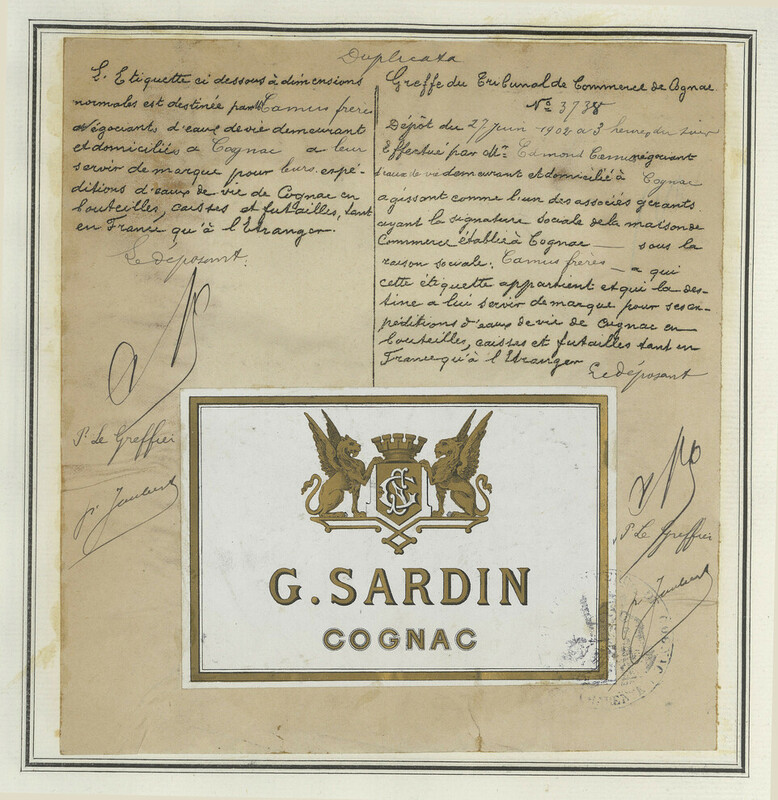 Duplicata
L'Etiquette ci dessous à dimensions
normales est destinée par Mrs Camus frères
Négociants d'eaux de vie demeurant
et domiciliés à Cognac à leur
servir de marque pour leurs expé-
ditions d'eaux de vie de Cognac en
bouteilles, caisses et futailles, tant
en France qu'à l'Etranger.
Le déposant.
Pr Le Greffier
pr Jaubert
Greffe du Tribunal de Commerce de Cognac
No 3738
Dépôt du 27 Juin 1902 à 3 heures du soir
Effectué par Mr Edmond Camus négociant
d'eaux de vie demeurant et domicilié à Cognac
agissant comme l'un des associés gérants
ayant la signature sociale de la maison de
Commerce établie à Cognac — sous la
raison sociale: Camus frères — à qui
cette étiquette appartient et qui la des-
tine à lui servir de marque pour ses ex-
péditions d'eaux de vie de Cognac en
bouteilles, caisses et futailles tant en
France qu'à l'Etranger
Le déposant
Pr Le Greffier
pr Jaubert
GS
G. SARDIN
COGNAC